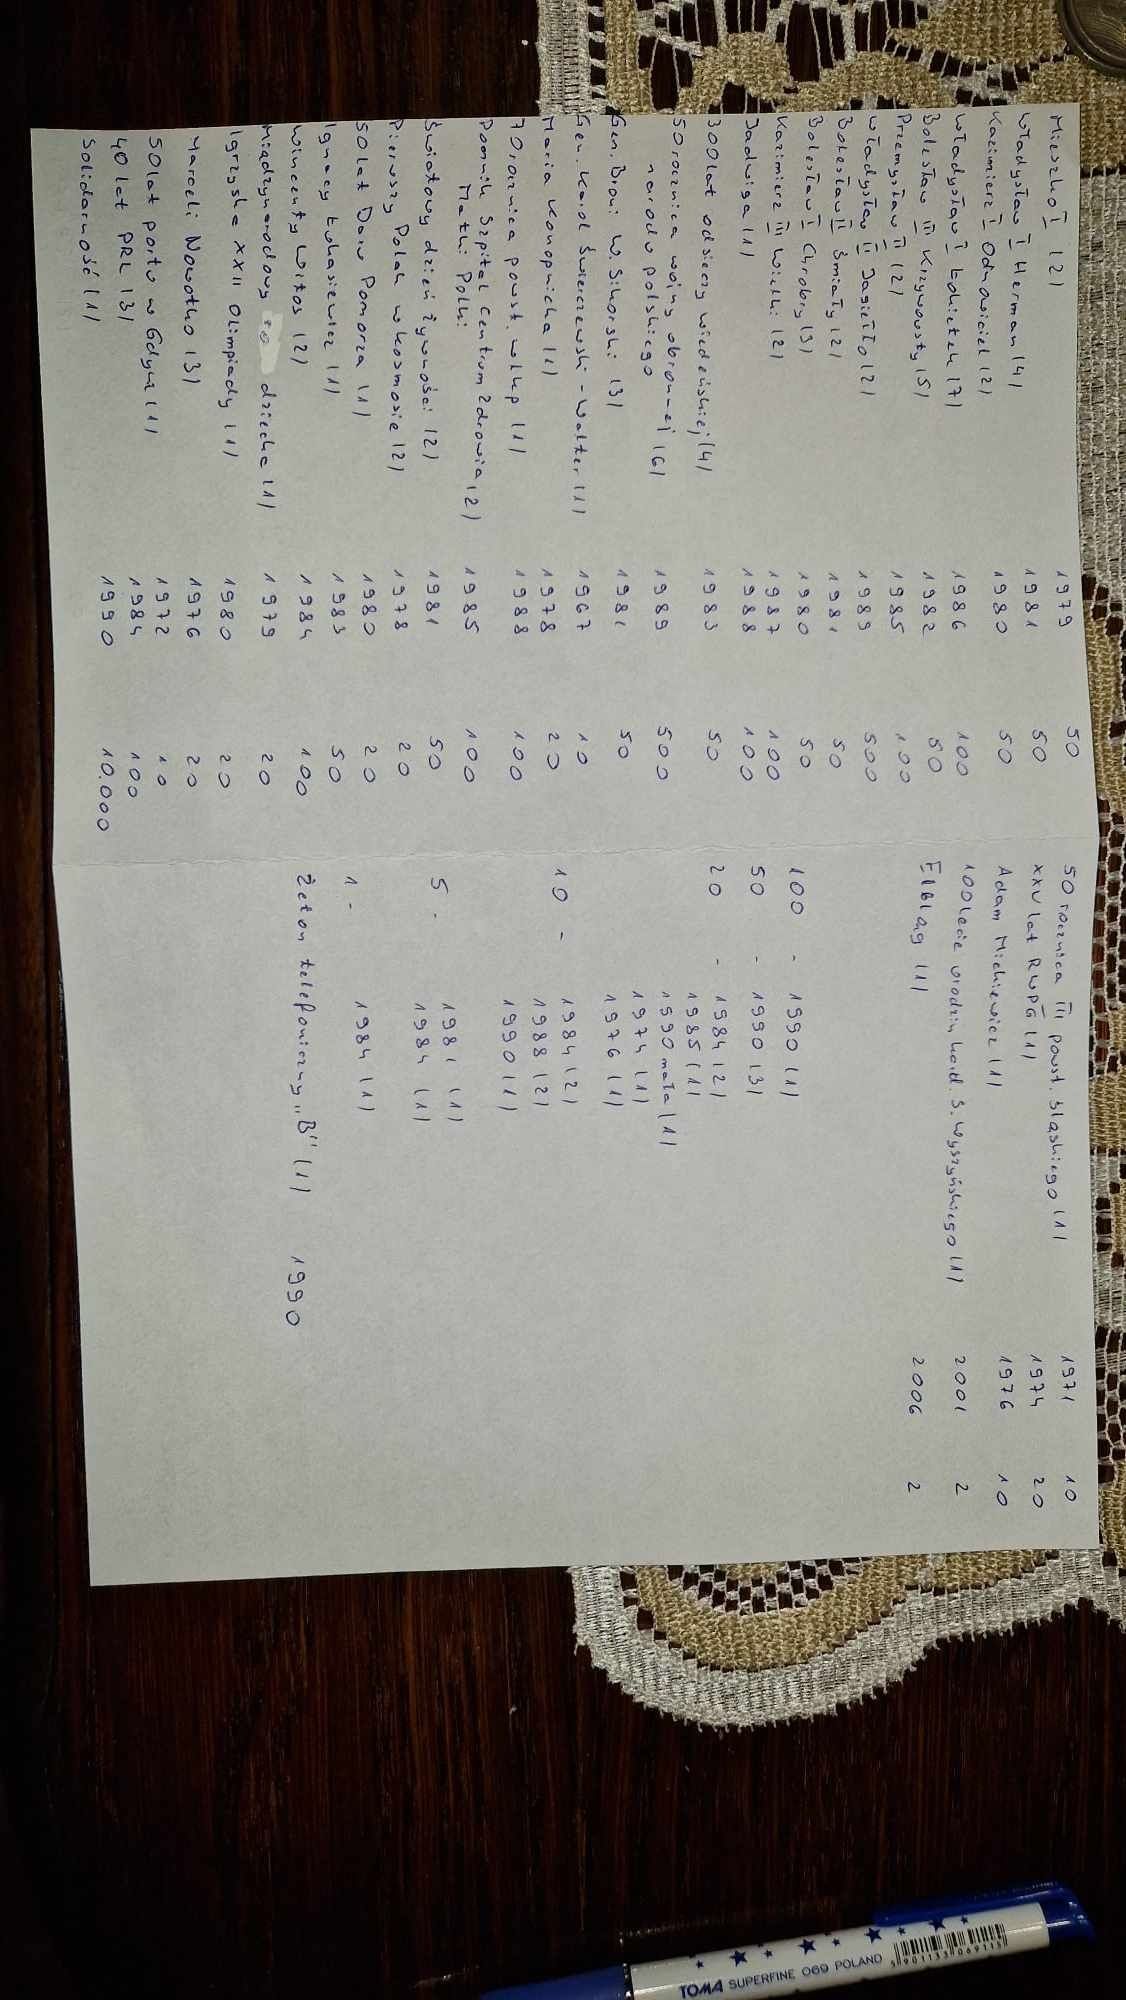 Mieszko I (2) 1979 50
Władysław I Herman (4) 1981 50
Kazimierz I Odnowiciel (2) 1980 50
Władysław I Łokietek (7) 1986 100
Bolesław III Krzywousty (5) 1982 50
Przemysław II (2) 1985 100
Władysław II Jagiełło (2) 1989 500
Bolesław II Śmiały (2) 1981 50
Bolesław I Chrobry (3) 1980 50
Kazimierz III Wielki (2) 1987 100
Jadwiga (1) 1988 100
300 lat odsieczy wiedeńskiej (4) 1983 50
50 rocznica wojny obronnej (6) 1989 500
narodu polskiego
Gen. Broni W. Sikorski (3) 1981 50
Gen. Karol Świerczewski - Walter (1) 1967 10
Maria Konopnicka (1) 1978 20
70 rocznica powst. wlkp (1) 1988 100
Pomnik Szpital Centrum Zdrowia (2) 1985 100
Matki Polki
Światowy dzień żywności (2) 1981 50
Pierwszy Polak w kosmosie (2) 1978 20
50 lat Daru Pomorza (1) 1980 20
Ignacy Łukasiewicz (1) 1983 50
Wincenty Witos (2) 1984 100
Międzynarodowy dziecka (1) 1979 20
Igrzyska XXII Olimpiady (1) 1980 20
Marceli Nowotko (3) 1976 20
50 lat portu w Gdyni (1) 1972 10
40 lat PRL (3) 1984 100
Solidarność (1) 1990 10.000
50 rocznica III powst. śląskiego (1) 1971 10
XXV lat RWPG (1) 1974 20
Adam Mickiewicz (1) 1976 10
100lecie urodzin kard. S. Wyszyńskiego (1) 2001 2
Elbląg (1) 2006 2
100 - 1990 (1)
50 - 1990 (3)
20 - 1984 (2)
1985 (1)
1990 mała (1)
1974 (1)
1976 (1)
10 - 1984 (2)
1988 (2)
1990 (1)
5 - 1981 (1)
1984 (1)
1 - 1984 (1)
Żeton telefoniczny „B" (1) 1990
TOMA SUPERFINE 069 POLAND
5901133069115